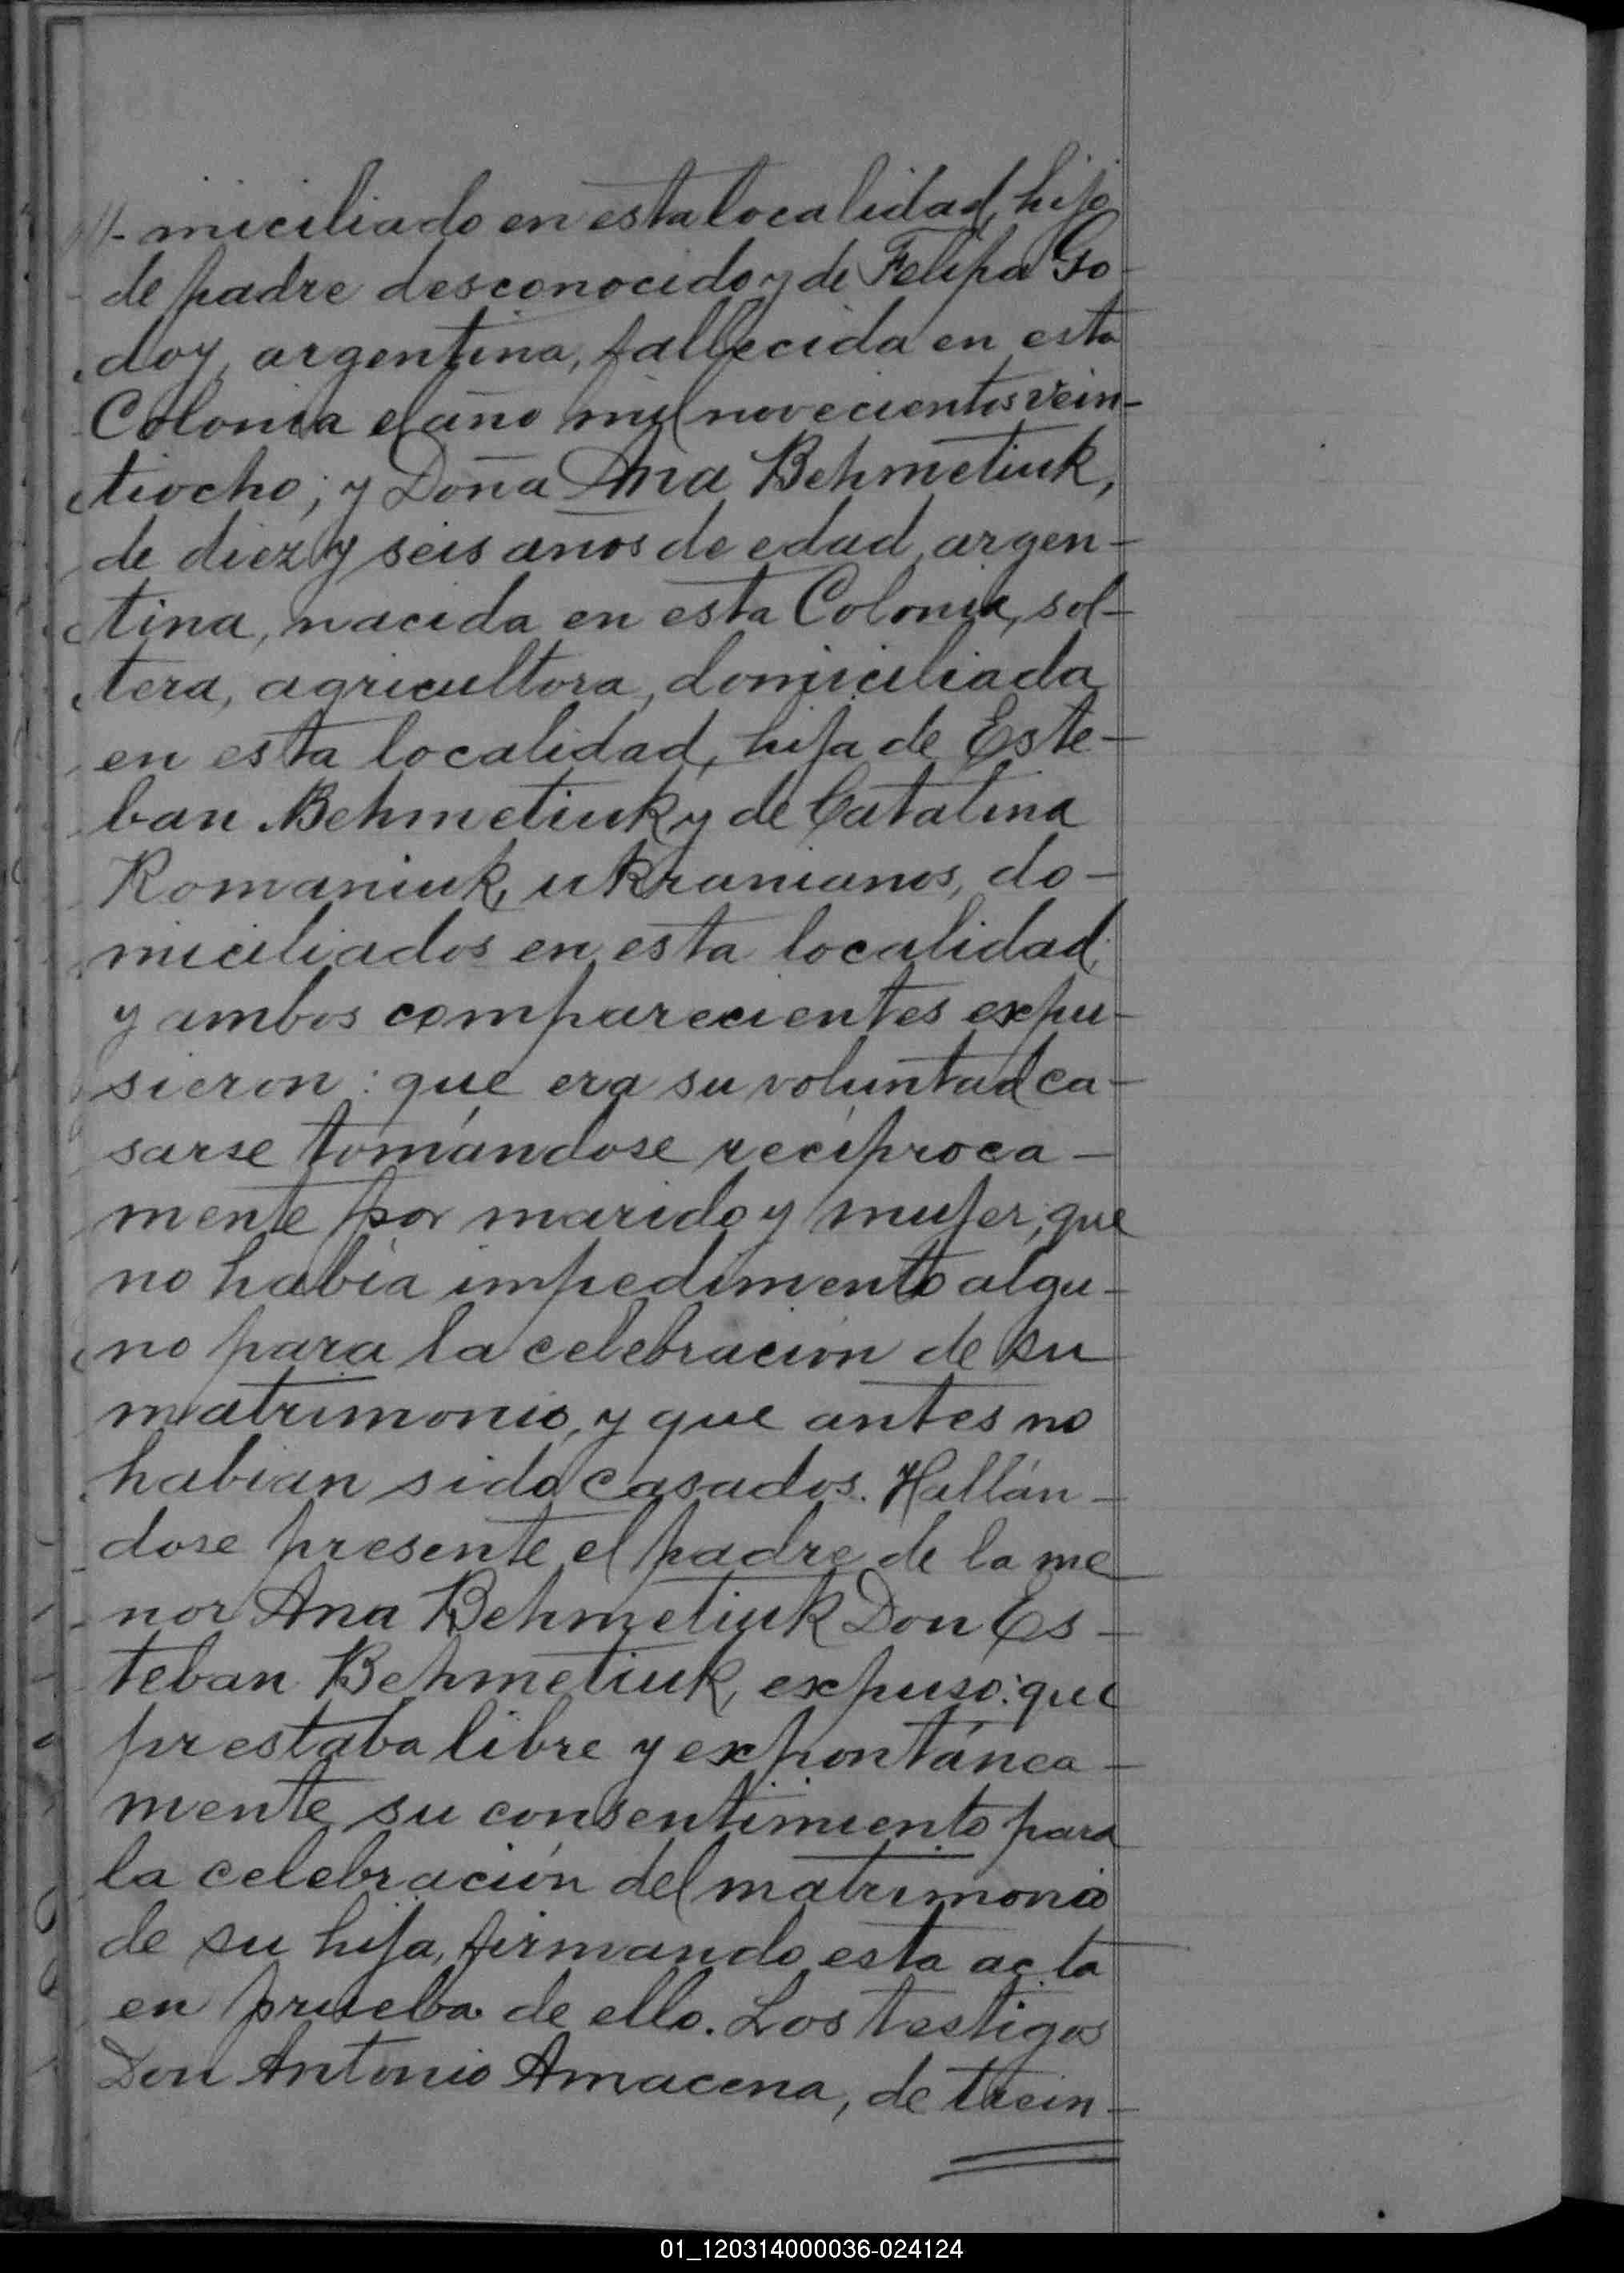 //- miciliado en esta localidad, hijo
de padre desconocido y de Felipa Go-
doy, argentina, fallecida en esta
Colonia el año mil novecientos vein-
tiocho; y Doña Ana Behmetiuk,
de diez y seis años de edad, argen-
tina, nacida en esta Colonia, sol-
tera, agricultora, domiciliada
en esta localidad, hija de Este-
ban Behmetiuk y de Catalina
Romaniuk, ukranianos, do-
miciliados en esta localidad;
y ambos comparecientes expu-
sieron: que era su voluntad ca-
sarse tomándose recíproca-
mente por marido y mujer, que
no había impedimento algu-
no para la celebración de su
matrimonio, y que antes no
habian sido casados. Hallán-
dose presente el padre de la me
nor Ana Behmetiuk Don Es-
teban Behmetiuk, expuso: que
prestaba libre y expontánea-
mente su consentimiento para
la celebración del matrimonio
de su hija, firmando esta acta
en prueba de ello. Los testigos
Don Antonio Amacena, de trein-
01_120314000036-024124